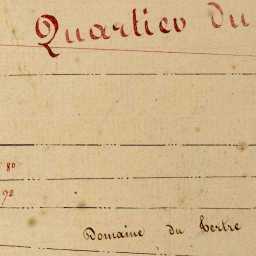 Quartier du
80
92
Domaine du Tertre